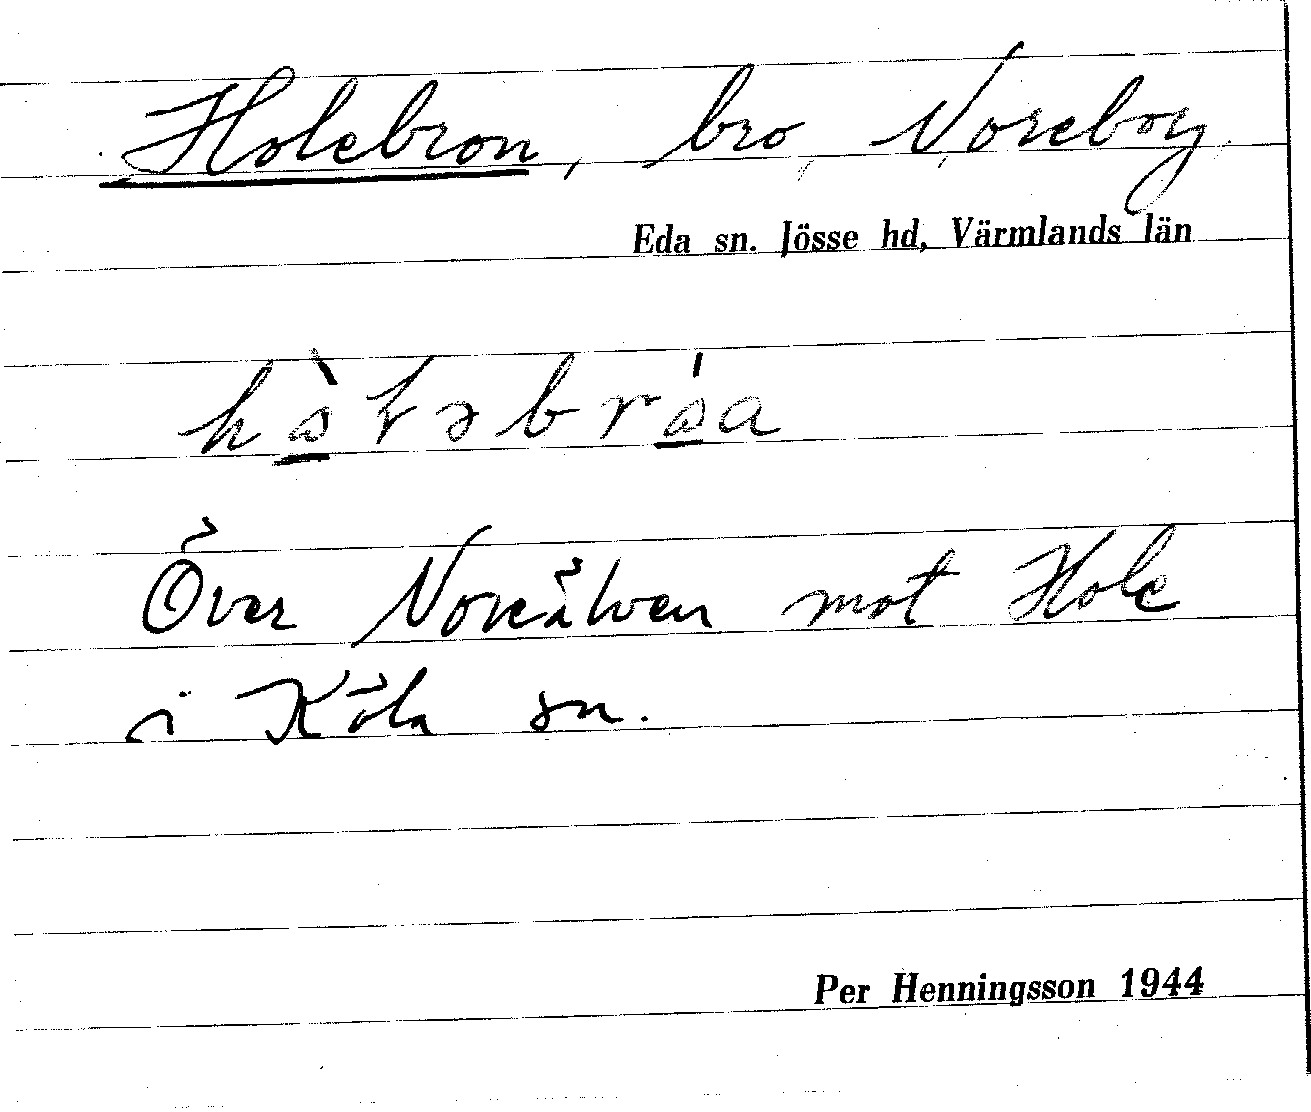 Holebron, bro, Noreborg.
Eda sn. Jösse hd, Värmlands län
Över Noreälven mot Hole
i Köla sn.
Per Henningsson 1944